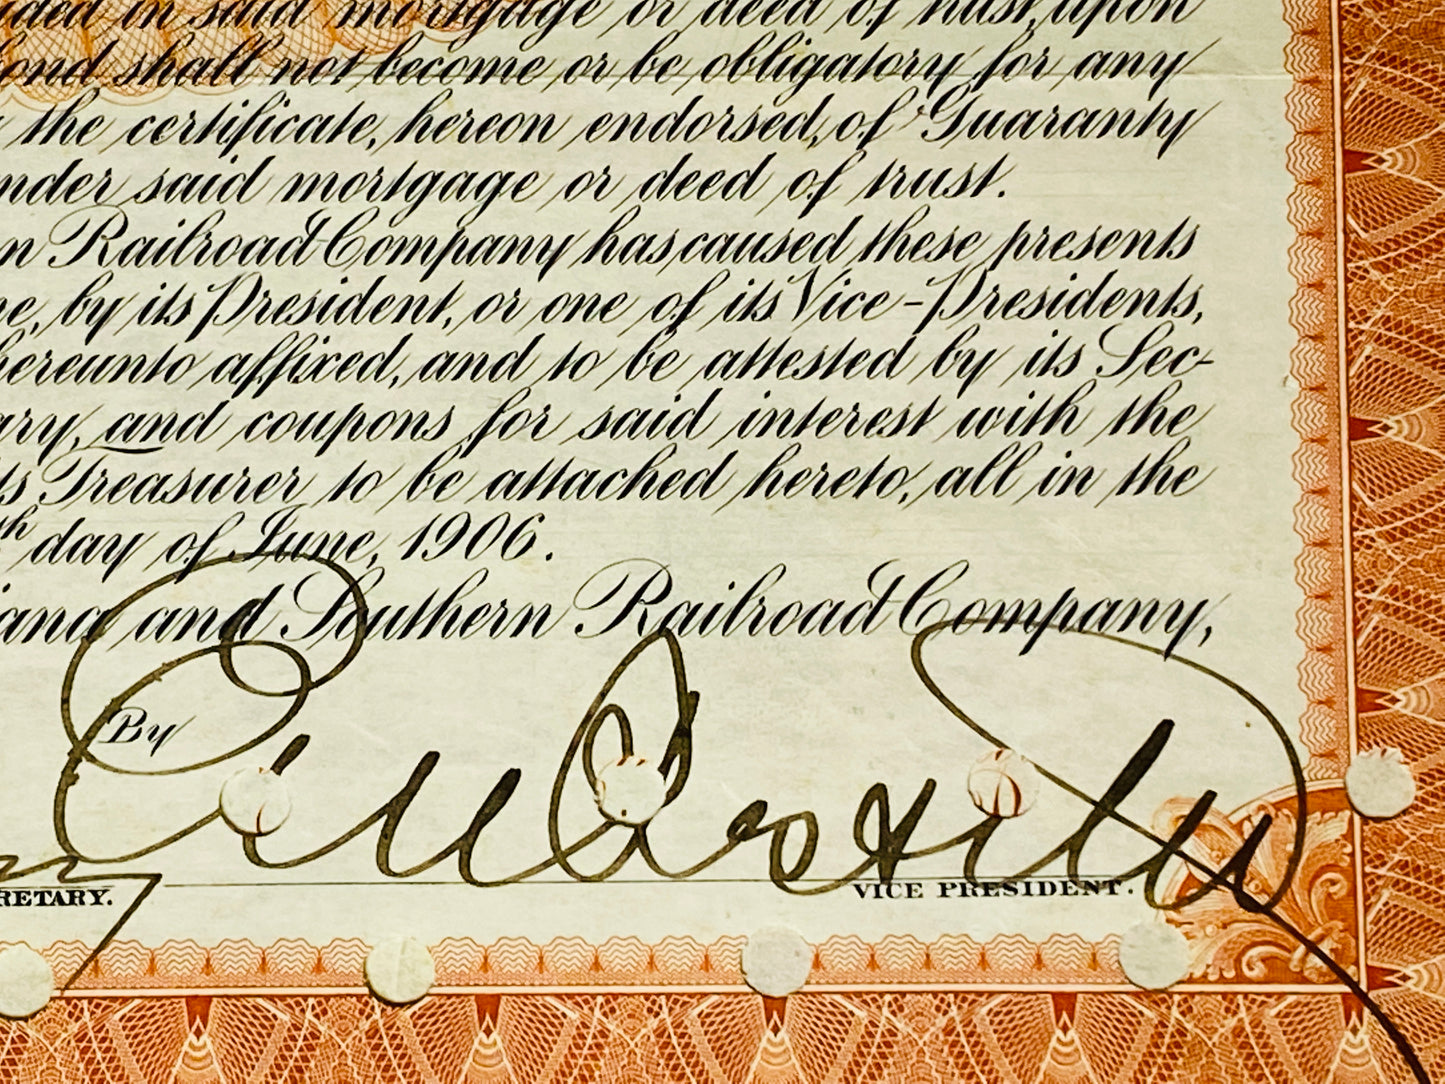 ded in said mortgage or deed of trust, upon
bond shall not become or be obligatory for any
the certificate, hereon endorsed, of Guaranty
nder said mortgage or deed of trust.
n Railroad Company has caused these presents
ne, by its President, or one of its Vice-Presidents,
hereunto affixed, and to be attested by its Sec-
ary, and coupons for said interest with the
ts Treasurer to be attached hereto, all in the
th day of June, 1906.
iana and Southern Railroad Company,
By
RETARY.
VICE PRESIDENT.